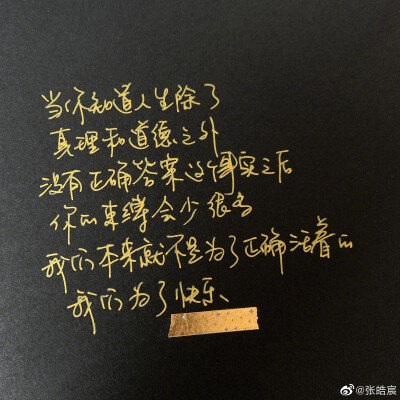 当你知道人生除了
真理和道德之外
没有正确答案这件事实之后
你的束缚会少很多
我们本来就不是为了正确活着的
我们为了快乐、
@张皓宸